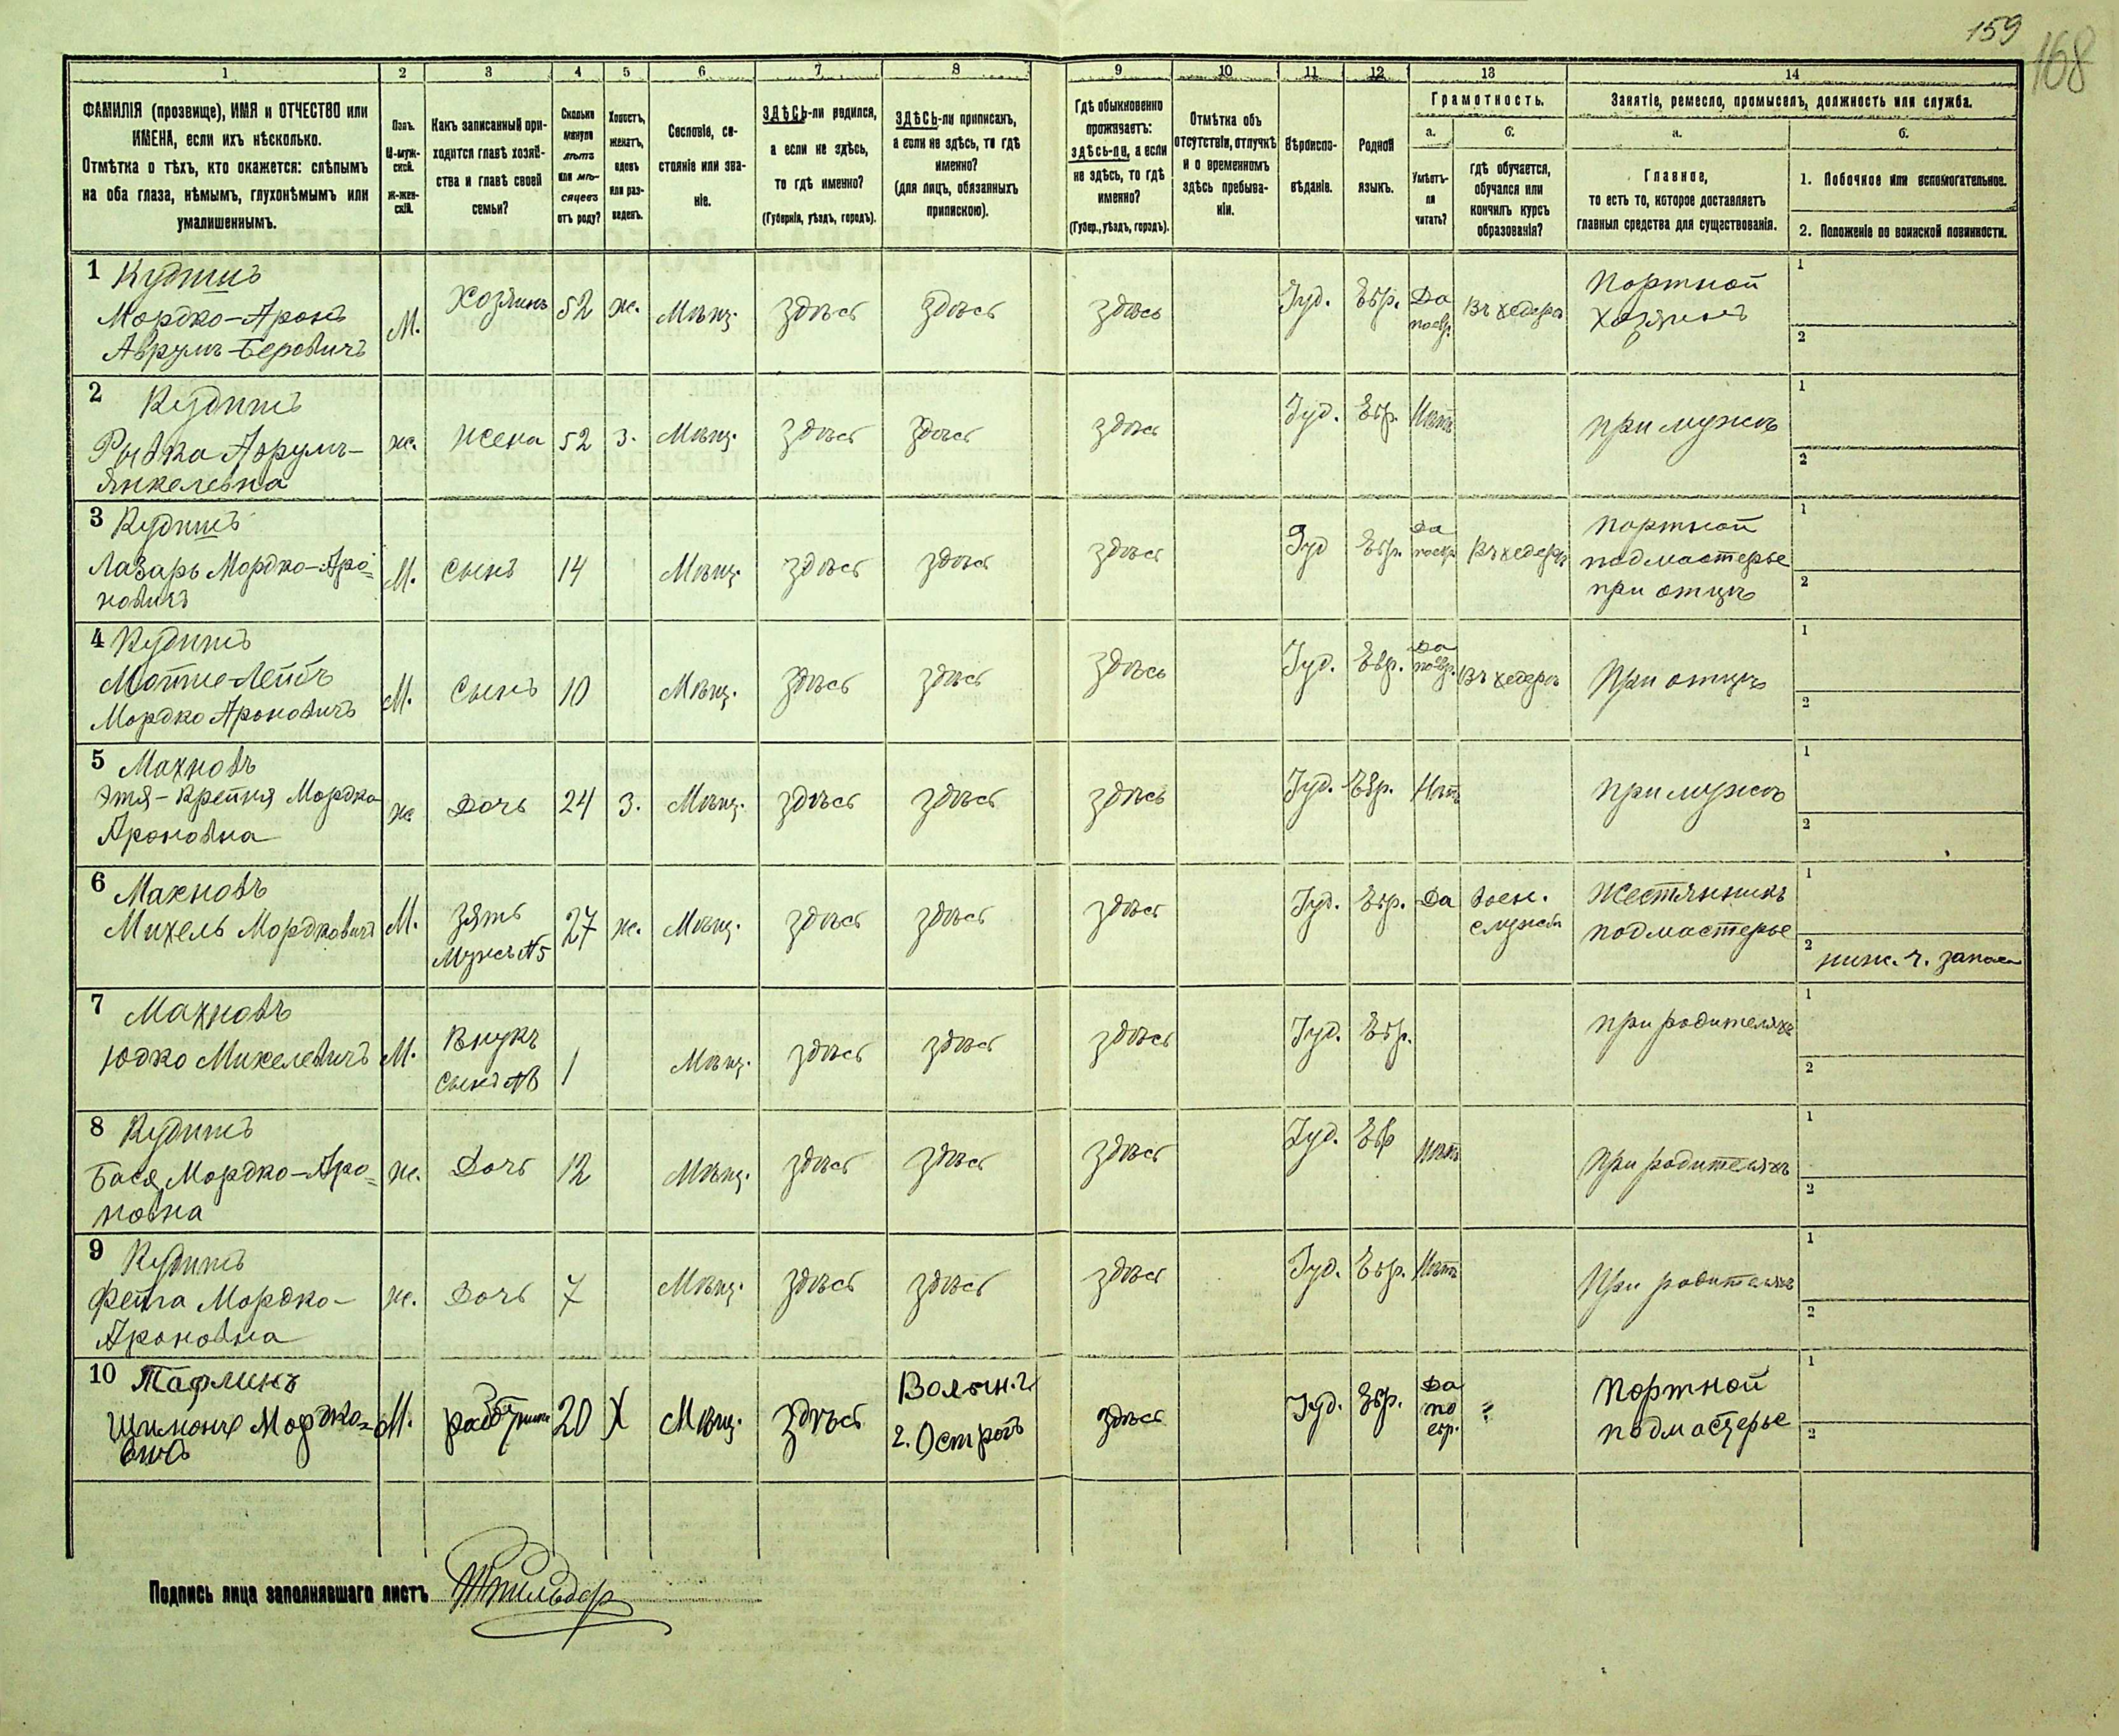 159
168
1 2 3 4 5 6 7 8 9 10 11 12 13 14
ФАМИЛІЯ (прозвище), ИМЯ и ОТЧЕСТВО или
ИМЕНА, если ихъ нѣсколько.
Отмѣтка о тѣхъ, кто окажется: слѣпымъ
на оба глаза, нѣмымъ, глухонѣмымъ или
умалишеннымъ.
Полъ.
М-муж-
ской.
Ж-жен-
скій.
Какъ записанный при-
ходится главѣ хозяй-
ства и главѣ своей
семьи?
Сколько
минуло
лѣтъ
или мѣ-
сяцевъ
отъ роду?
Холостъ,
женатъ,
вдовъ
или раз-
веденъ.
Сословіе, со-
стояніе или зва-
ніе.
ЗДѢСЬ-ли родился,
а если не здѣсь,
то гдѣ именно?
(Губернія, уѣздъ, городъ).
ЗДѢСЬ-ли приписанъ,
а если не здѣсь, то гдѣ
именно?
(для лицъ, обязанныхъ
припискою).
Гдѣ обыкновенно
проживаетъ:
здѣсь-ли, а если
не здѣсь, то гдѣ
именно?
(Губер., уѣздъ, городъ).
Отмѣтка объ
отсутствіи, отлучкѣ
и о временномъ
здѣсь пребыва-
ніи.
Вѣроиспо-
вѣданіе.
Родной
языкъ.
Грамотность.
а.
Умѣетъ-
ли
читать?
б.
гдѣ обучается,
обучался или
кончилъ курсъ
образованія?
Занятіе, ремесло, промыселъ, должность или служба.
а.
Главное,
то есть то, которое доставляетъ
главныя средства для существованія.
б.
1. Побочное или вспомогательное.
2. Положеніе по воинской повинности.
1 Кудишъ
Мордко-Аронъ
Аврумъ-Беровичъ
М.
Хозяинъ
52
ж.
Мѣщ.
здѣсь
здѣсь
здѣсь
Іуд.
Евр.
Да
по евр.
Въ хедерѣ
Портной
хозяинъ
1
2
2 Кудишъ
Рывка Аврумъ-
Янкелевна
ж.
жена
52
з.
Мѣщ.
здѣсь
здѣсь
здѣсь
Іуд.
Евр.
Нѣтъ
при мужѣ
1
2
3 Кудишъ
Лазарь Мордко-Аро=
новичъ
М.
сынъ
14
Мѣщ.
здѣсь
здѣсь
здѣсь
Іуд
Евр.
Да
по евр
Въ хедерѣ
портной
подмастерье
при отцѣ
1
2
4 Кудишъ
Мотие-Лейбъ
Мордко Ароновичъ
М.
сынъ
10
Мѣщ.
здѣсь
здѣсь
здѣсь
Іуд.
Евр.
Да
по евр.
Въ хедерѣ
При отцѣ
1
2
5 Махновъ
Этя-Крейня Мордко
Ароновна
ж
Дочь
24
З.
Мѣщ.
здѣсь
здѣсь
здѣсь
Іуд.
Евр.
Нѣтъ
при мужѣ
1
2
6 Махновъ
Михель Мордковичъ
М.
зять
мужъ №5
27
ж.
Мѣщ.
здѣсь
здѣсь
здѣсь
Іуд.
Евр.
Да
воен.
служба
Жестянникъ
подмастерье
1
2 ниж. ч. запаса
7 Махновъ
Юдко Михелевичъ
М.
Внукъ
1
Мѣщ.
здѣсь
здѣсь
здѣсь
Іуд.
Евр.
при родителяхъ
1
2
8 Кудишъ
Бася Мордко-Аро=
новна
ж.
Дочь
12
Мѣщ.
здѣсь
здѣсь
здѣсь
Іуд.
Евр
Нѣтъ
при родителяхъ
1
2
9 Кудишъ
Фейга Мордко-
Ароновна
ж.
Дочь
7
Мѣщ.
здѣсь
здѣсь
здѣсь
Іуд.
Евр.
Нѣтъ
При родителяхъ
1
2
10 Тафлинъ
Шимонъ Мордко=
вичъ
М.
20
Х
Мѣщ.
здѣсь
Волын. г.
г. Острогъ
здѣсь
Іуд.
Евр.
Да
по
евр.
?
Портной
подмастерье
1
2
Подпись лица заполнявшаго листъ